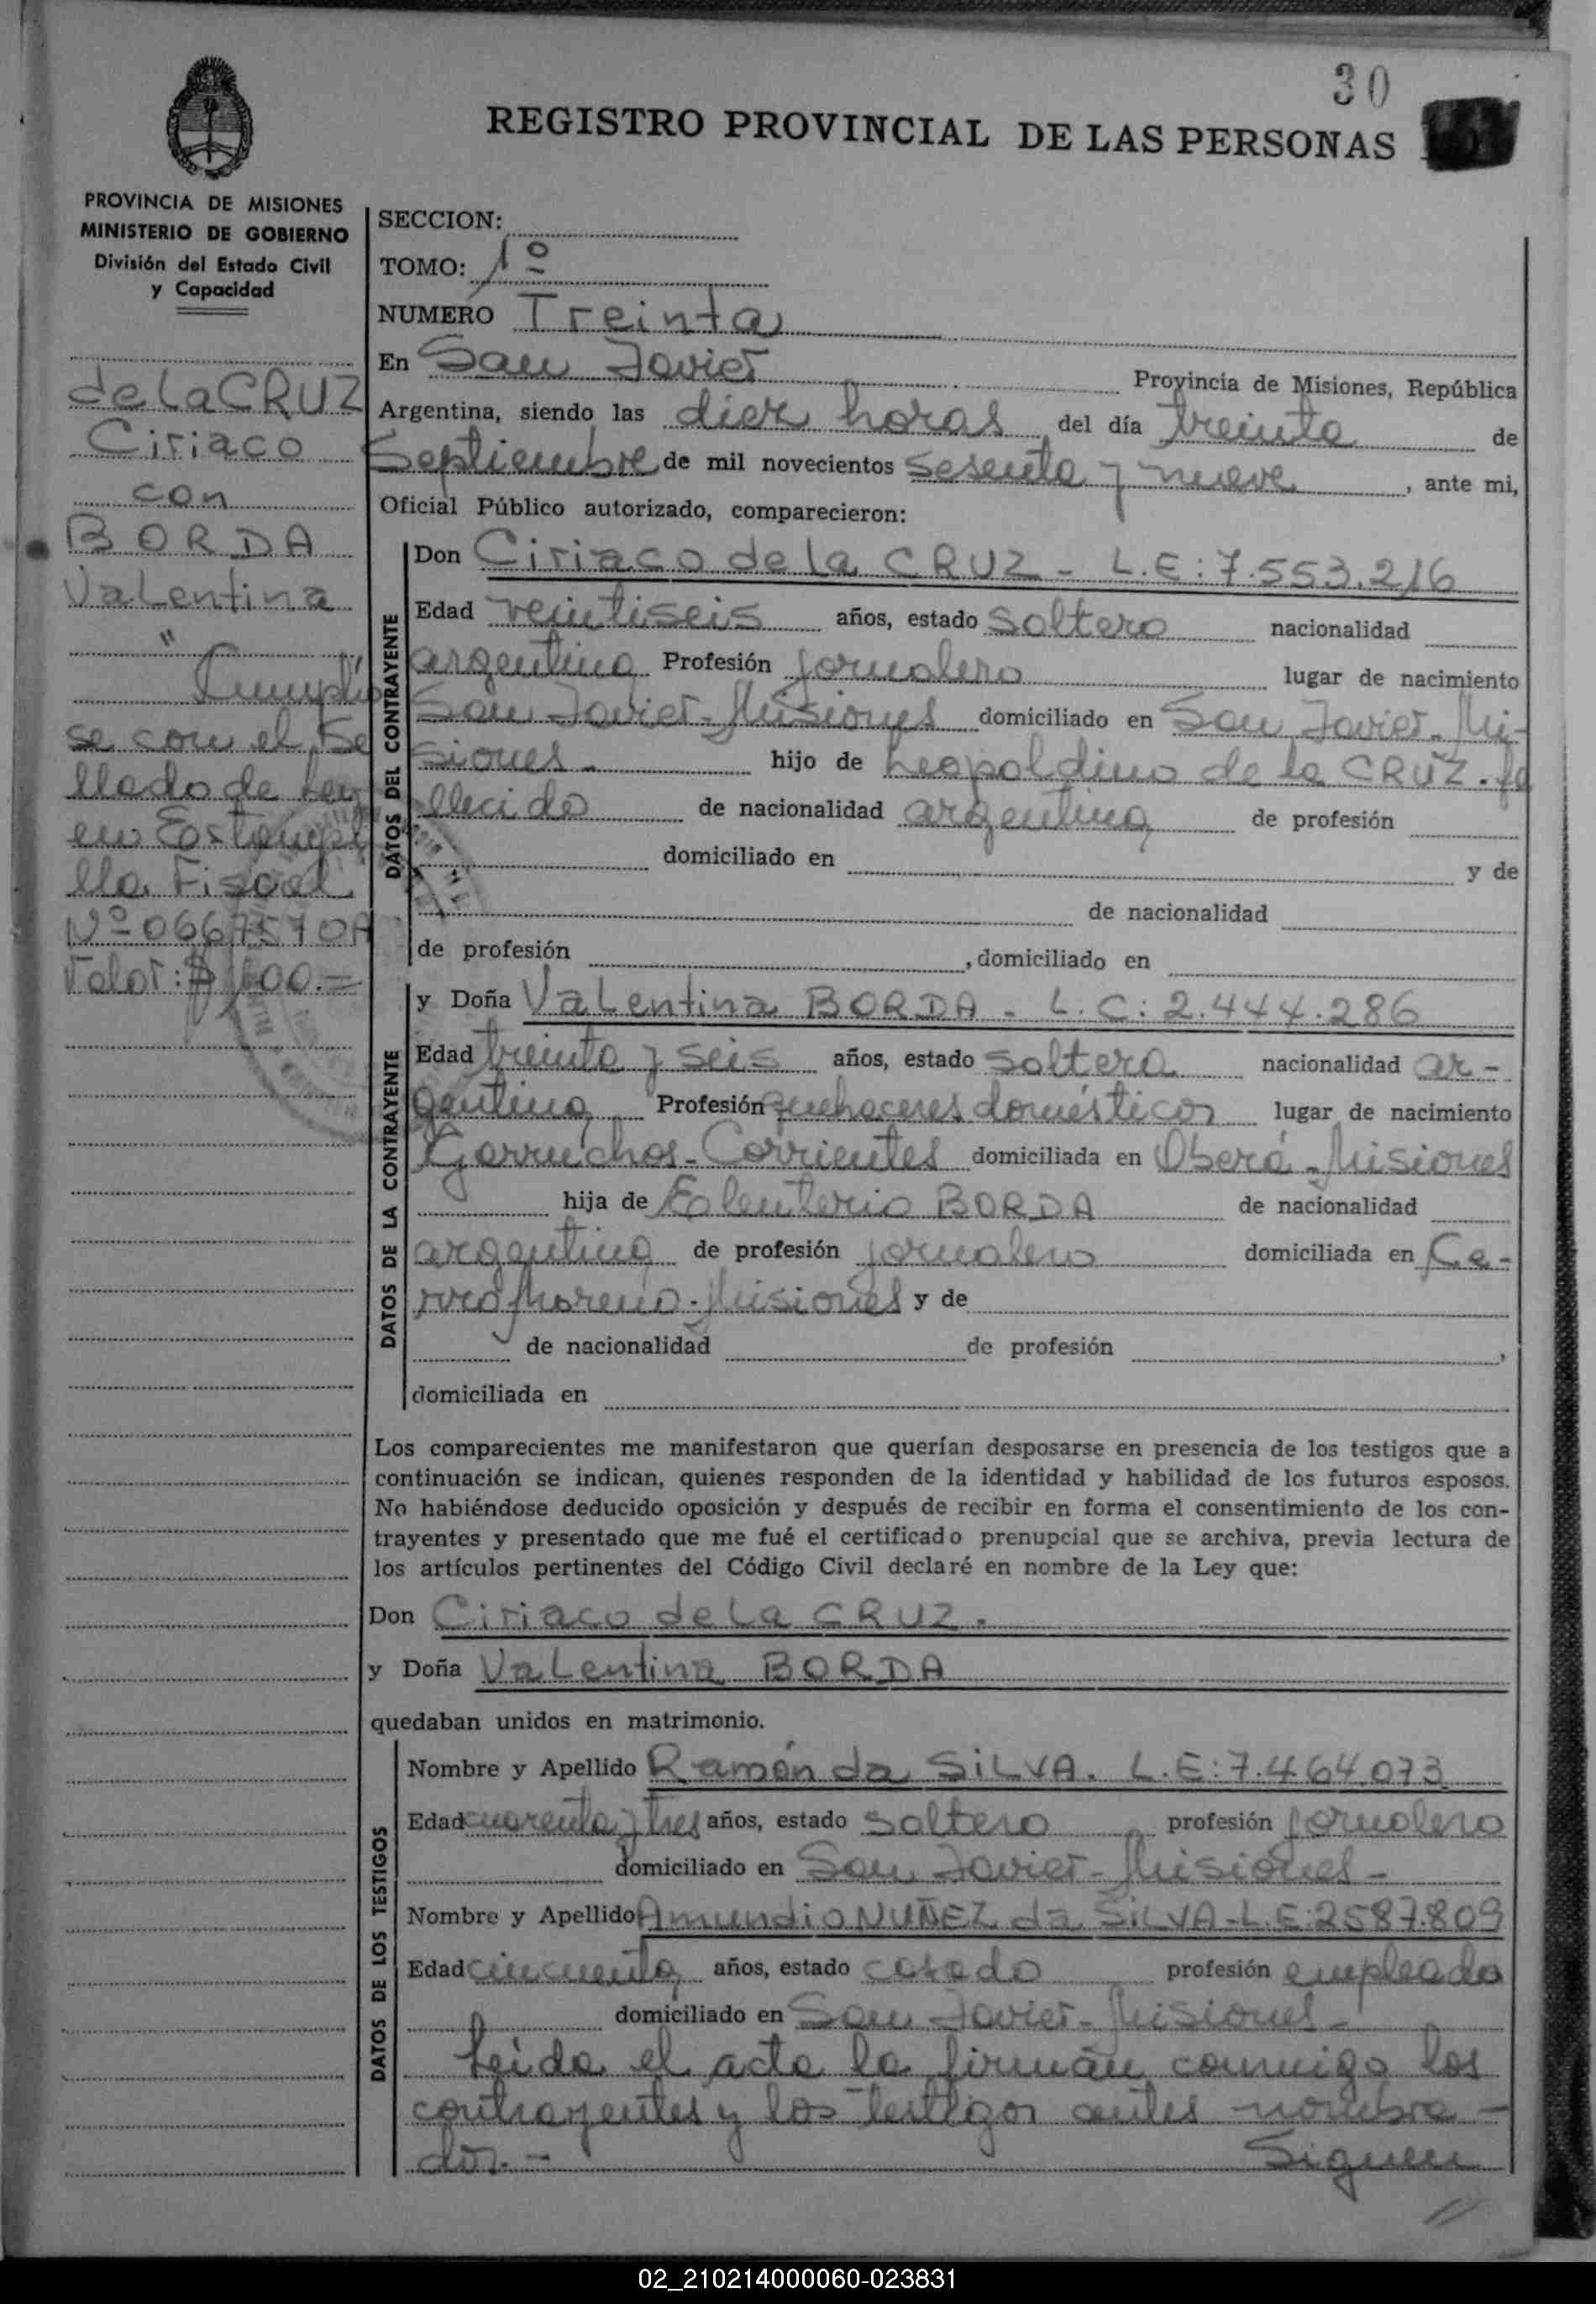 30
REGISTRO PROVINCIAL DE LAS PERSONAS
PROVINCIA DE MISIONES
MINISTERIO DE GOBIERNO
División del Estado Civil
y Capacidad
de La CRUZ
Ciriaco
con
BORDA
Valentina
" Cumplió
se con el Se
llado de Ley
en Estampi
lla Fiscal
Nº 0667570A
Valor: $ 1600.=
SECCION:
TOMO: 1º
NUMERO Treinta
En San Javier Provincia de Misiones, República
Argentina, siendo las diez horas del día treinta de
Septiembre de mil novecientos sesenta y nueve, ante mi,
Oficial Público autorizado, comparecieron:
DATOS DEL CONTRAYENTE
Don Ciriaco de la CRUZ - L.E: 7.553.216
Edad veintiseis años, estado soltero nacionalidad
argentina Profesión jornalero lugar de nacimiento
San Javier - Misiones domiciliado en San Javier - Mi-
siones - hijo de Leopoldino de la CRUZ . fa
llecido de nacionalidad argentina de profesión
domiciliado en y de
de nacionalidad
de profesión , domiciliado en
DATOS DE LA CONTRAYENTE
y Doña Valentina BORDA - L.C: 2.444.286
Edad treinta y seis años, estado soltera nacionalidad ar-
gentina Profesión quehaceres domésticos lugar de nacimiento
Garruchos - Corrientes domiciliada en Oberá - Misiones
hija de Eleuterio BORDA de nacionalidad
argentina de profesión jornalero domiciliada en Ce-
rro Moreno - Misiones y de
de nacionalidad de profesión ,
domiciliada en
Los comparecientes me manifestaron que querían desposarse en presencia de los testigos que a
continuación se indican, quienes responden de la identidad y habilidad de los futuros esposos.
No habiéndose deducido oposición y después de recibir en forma el consentimiento de los con-
trayentes y presentado que me fué el certificado prenupcial que se archiva, previa lectura de
los artículos pertinentes del Código Civil declaré en nombre de la Ley que:
Don Ciriaco de La CRUZ.
y Doña Valentina BORDA
quedaban unidos en matrimonio.
DATOS DE LOS TESTIGOS
Nombre y Apellido Ramón da SILVA. L.E: 7.464.073
Edad cuarenta y tres años, estado soltero profesión jornalero
domiciliado en San Javier - Misiones -
Nombre y Apellido Amundio NUÑEZ da SILVA - L.E: 2587.809
Edad cincuenta años, estado casado profesión empleado
domiciliado en San Javier - Misiones -
Leida el acta la firman conmigo los
contrayentes y los testigos antes nombra-
dos. - Siguen
02_210214000060-023831